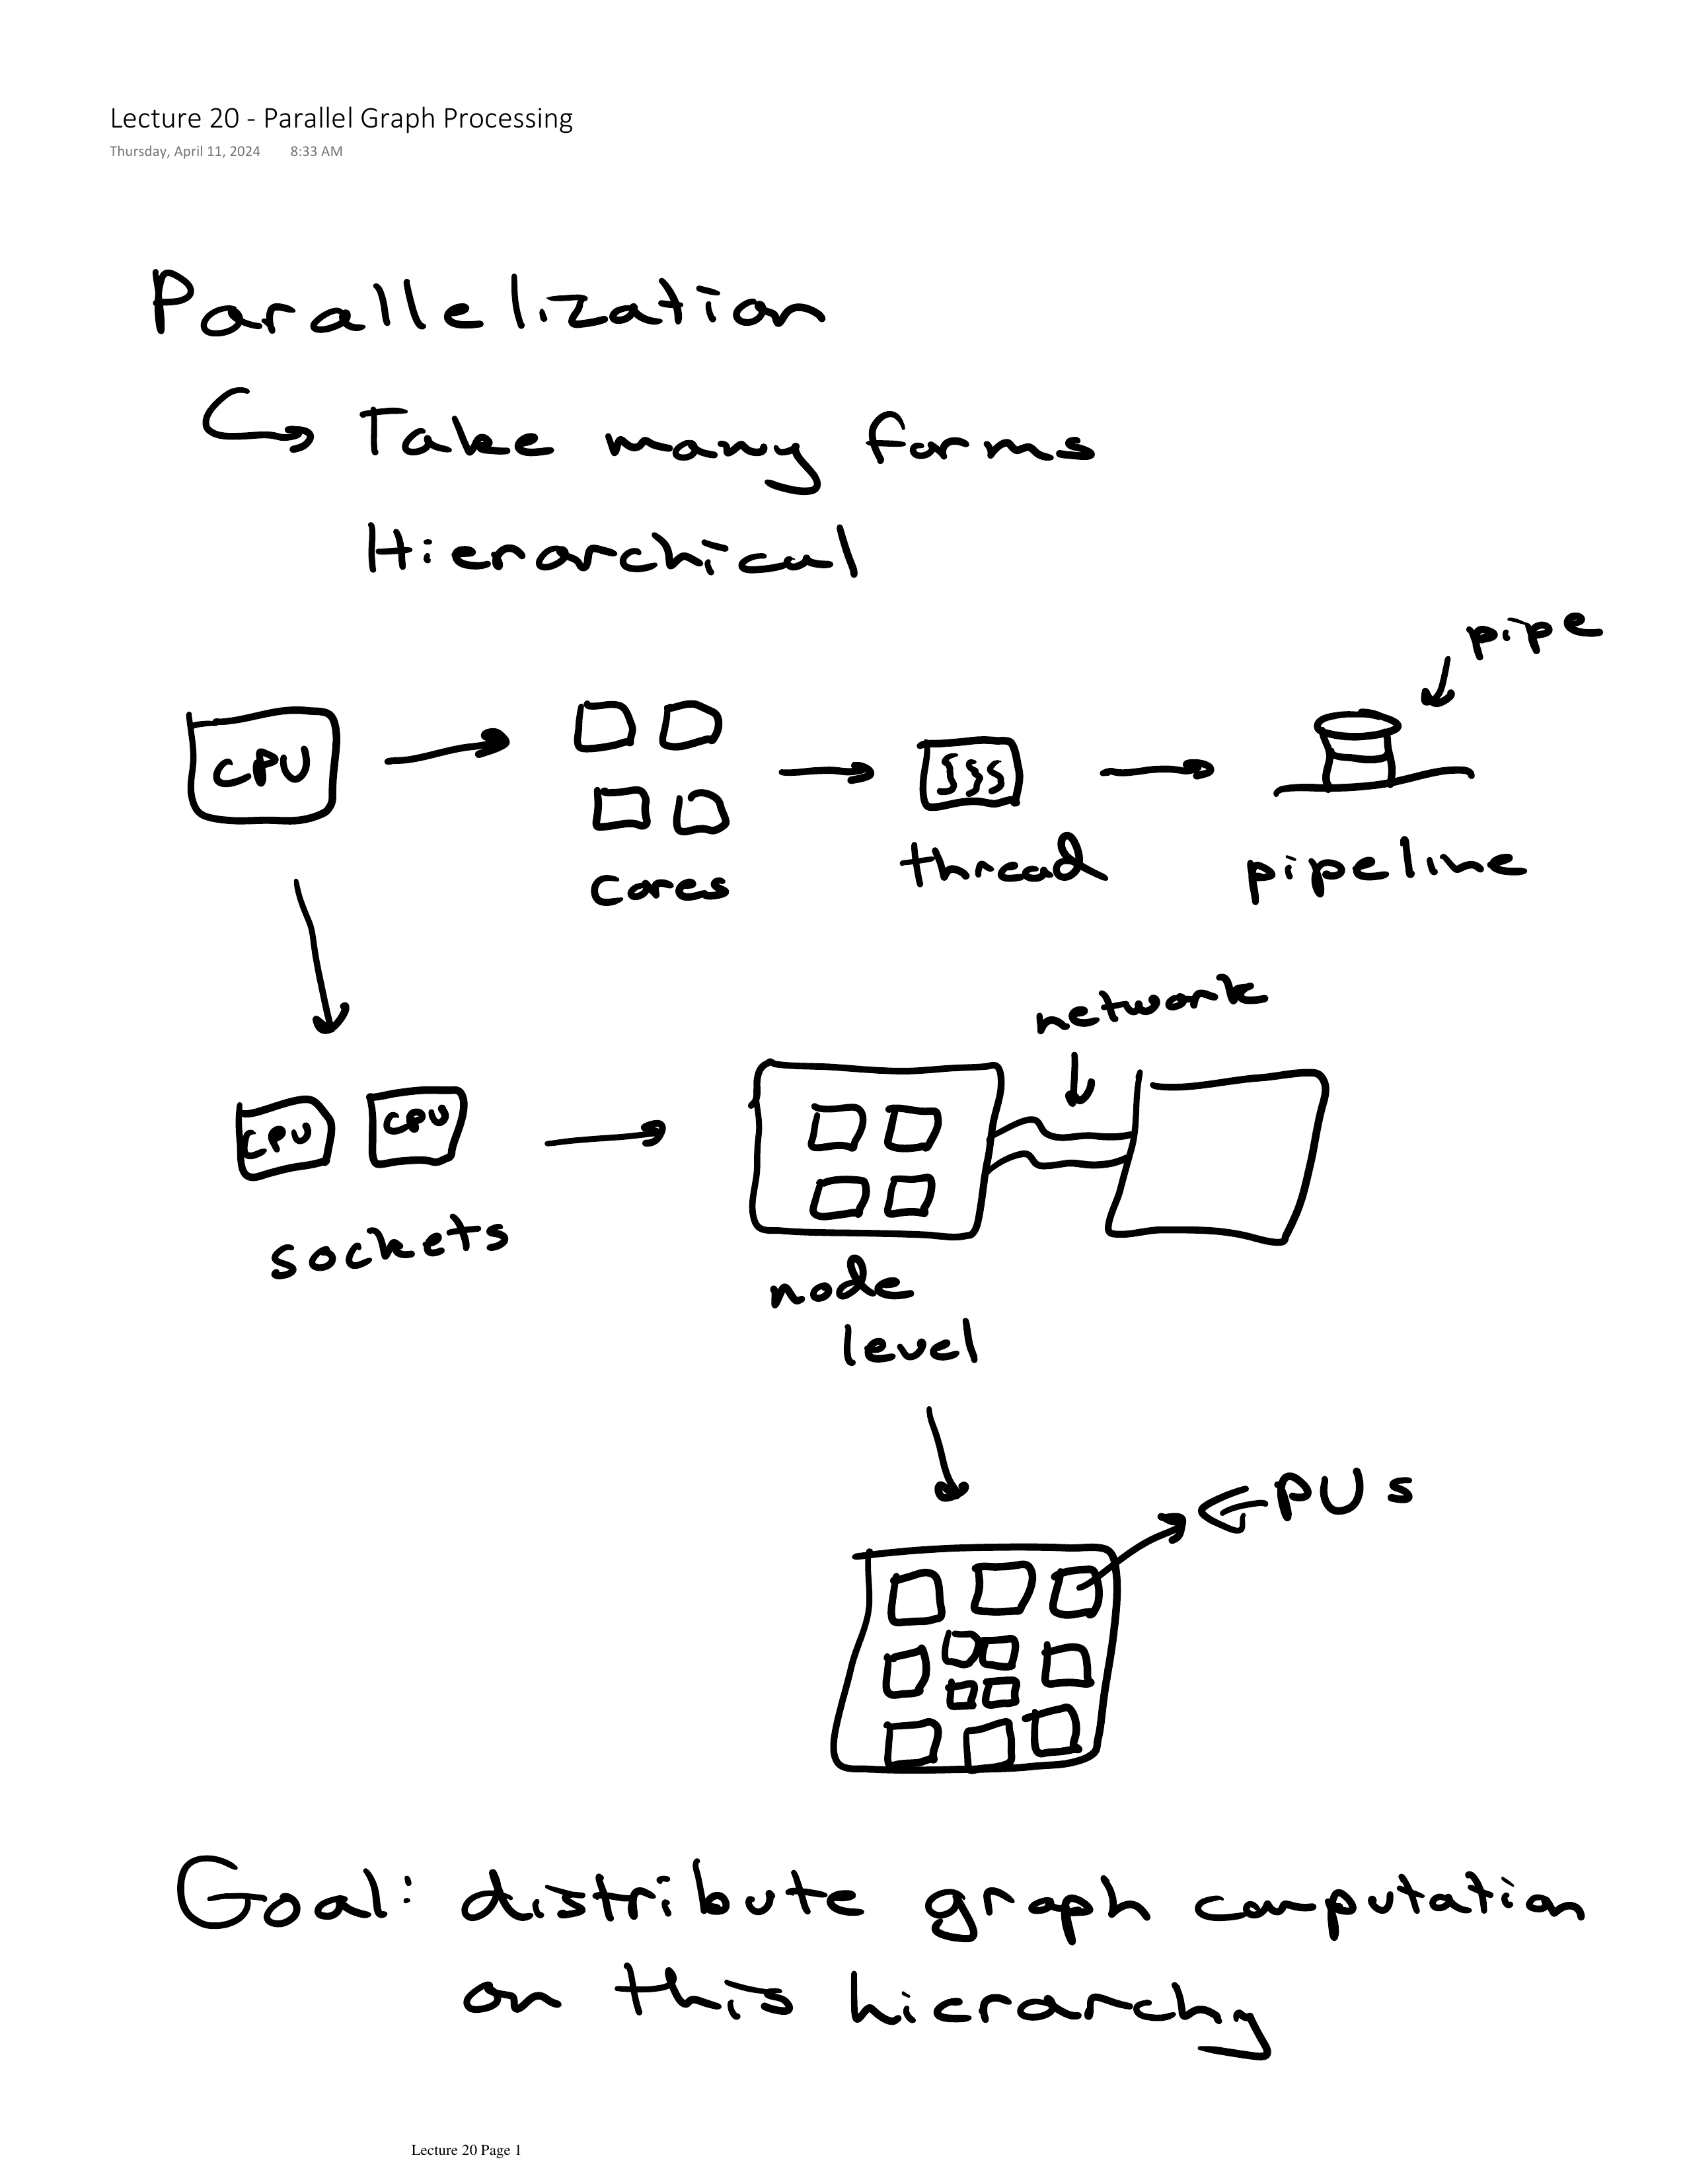 Lecture 20 - Parallel Graph Processing
Thursday, April 11, 2024 8:33 AM
Parallelization
Take many forms
Hierarchical
pipe
CPU
SSS
cores
thread
pipeline
network
CPU CPU
sockets
node
level
GPUs
Goal: distribute graph computation
on this hierarchy
Lecture 20 Page 1